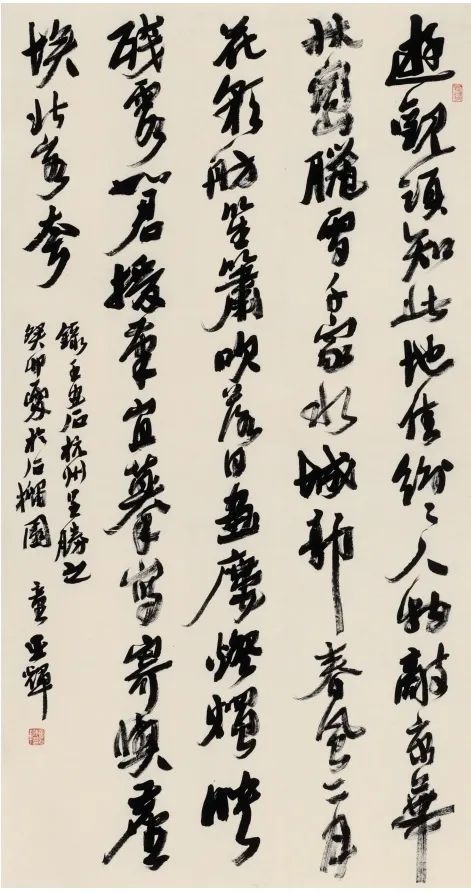 遊觀須知此地佳紛〻人物敵京華
林巒臘雪千家水城郭春風二月
花彩舫笙簫吹落日畫樓燈燭映
殘霞如君援筆宜摹寫寄與塵
埃北客夸
錄王安石杭州呈勝之
癸卯夏於石園 童亞輝